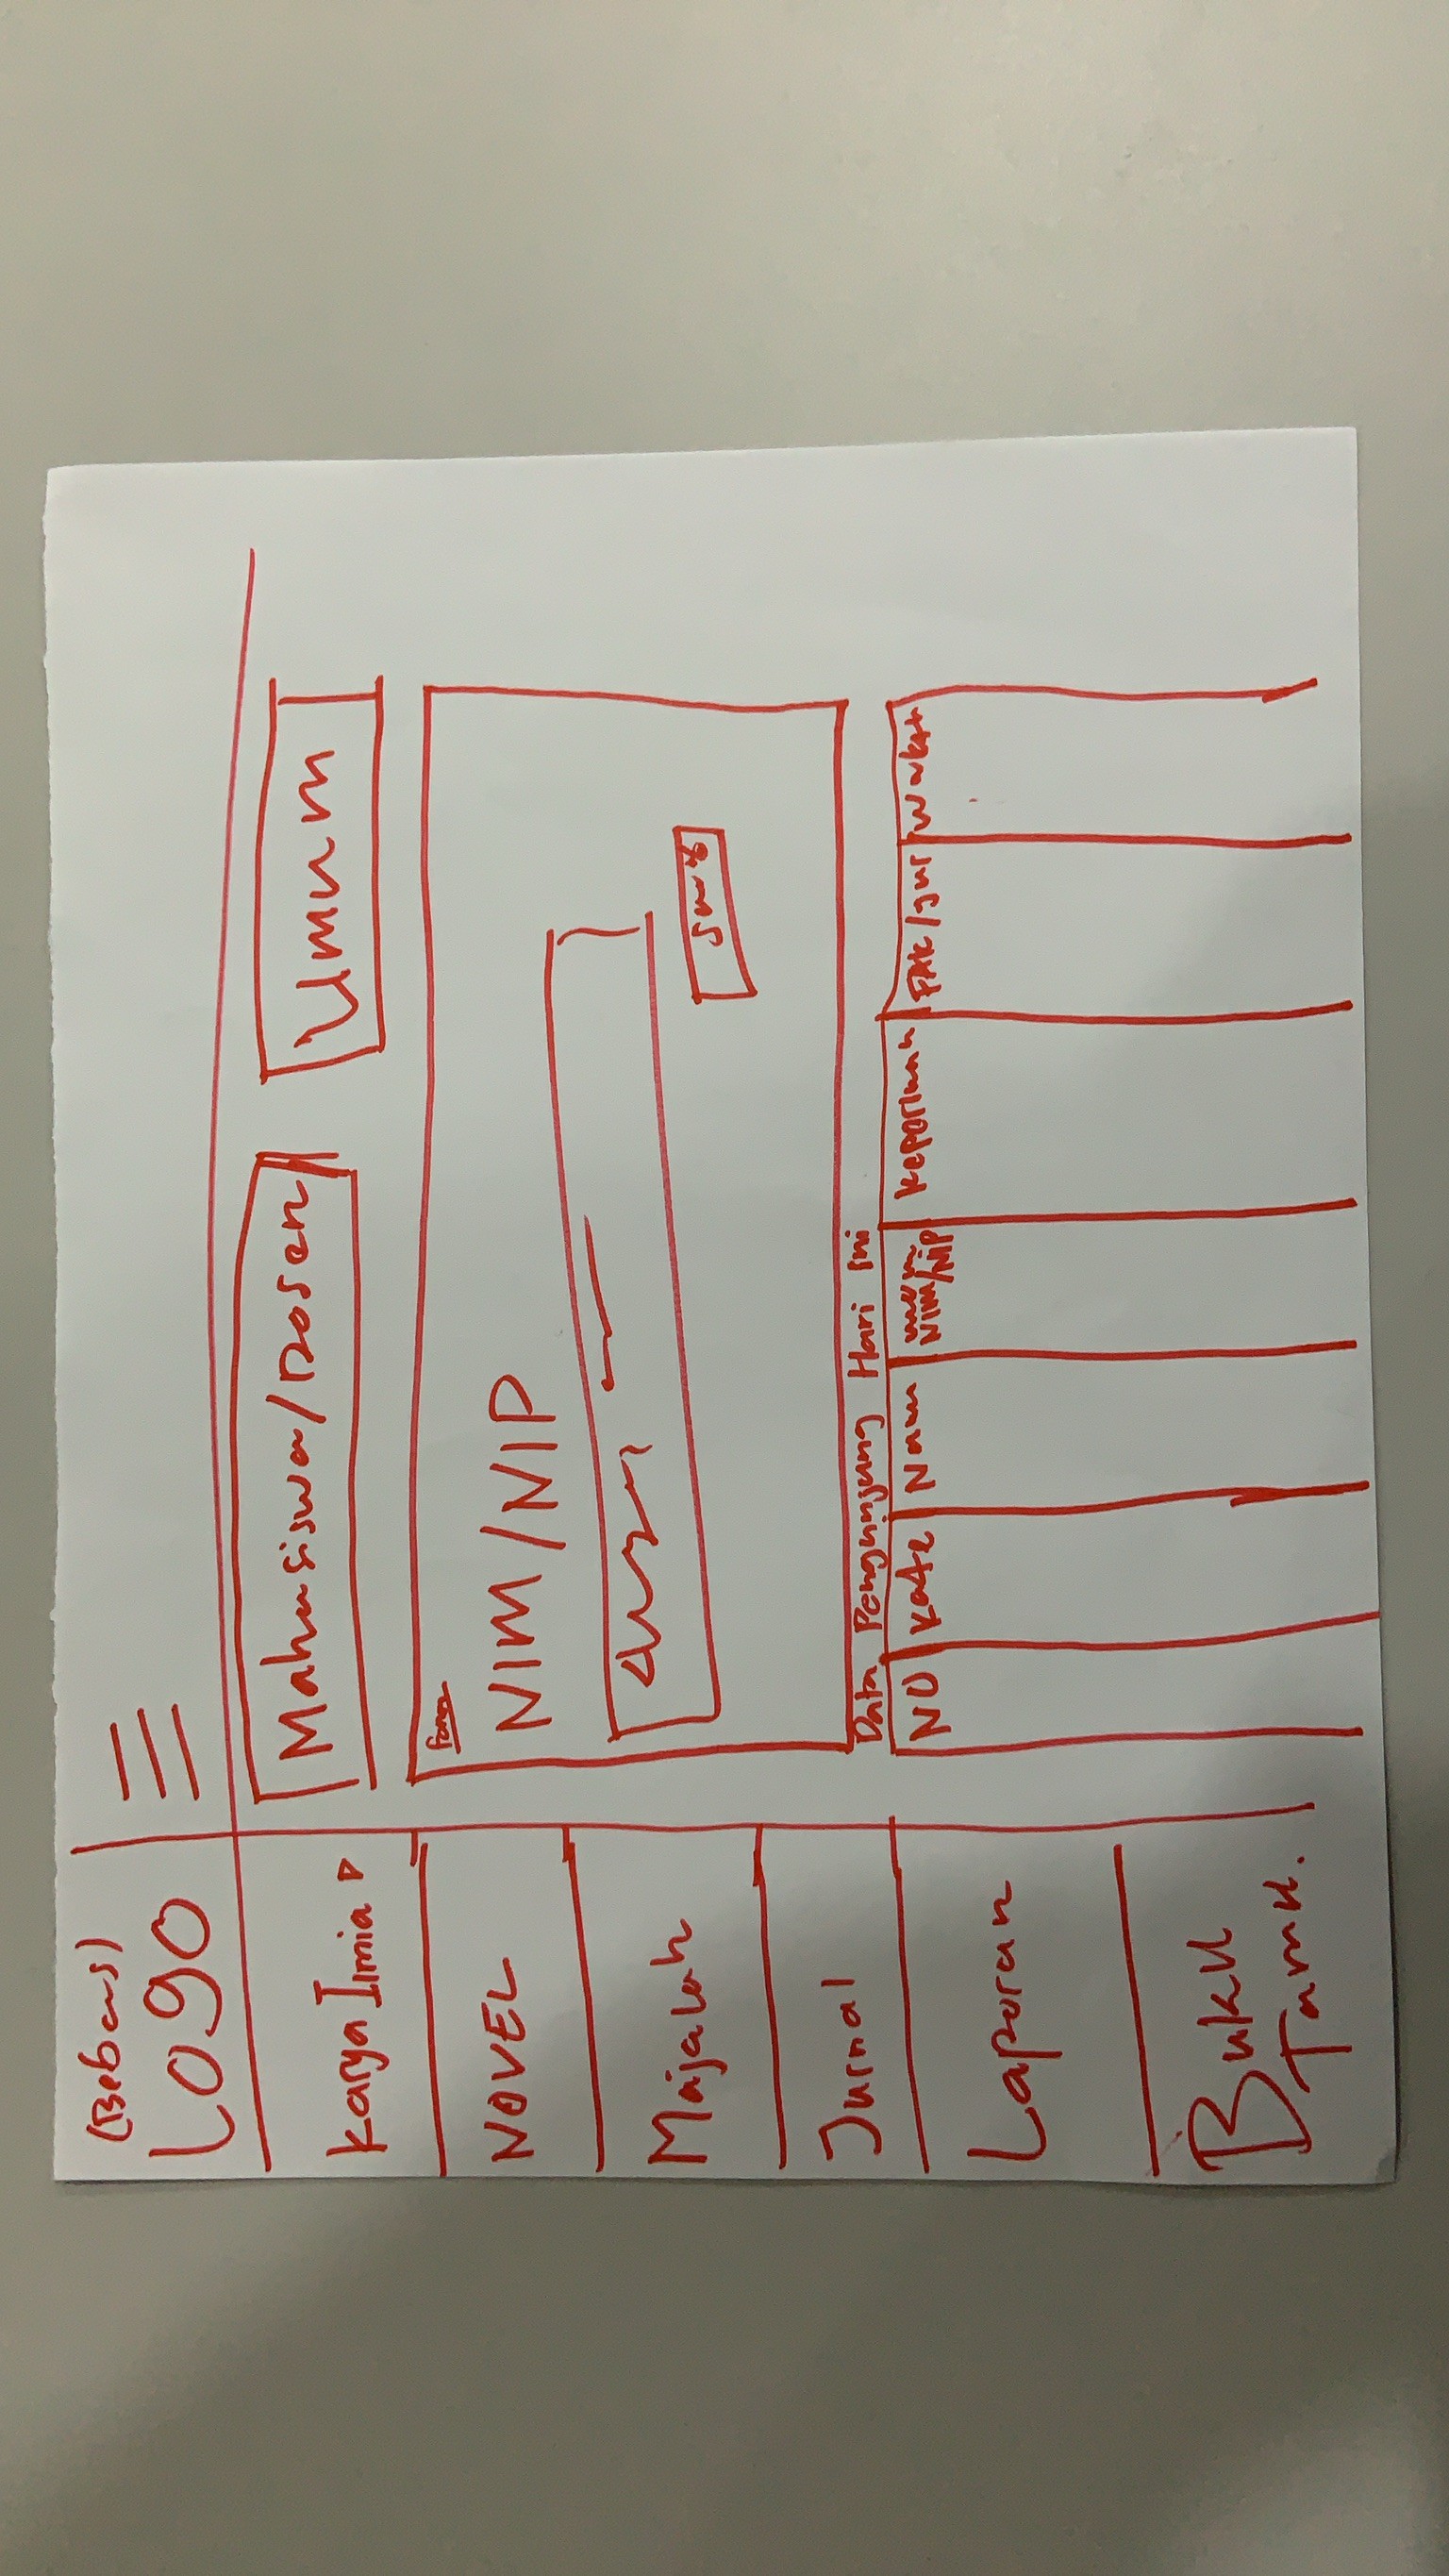 (Bebas)
LOGO
Karya Ilmia
NOVEL
Majalah
Jurnal
Laporan
Buku
Tamu.
Mahasiswa/Dosen
Umum
Form
NIM/NIP
Data Pengunjung Hari Ini
NO
Kate
Nam
NIM/NIP
Keperluan
FAK/Jur
Waktu